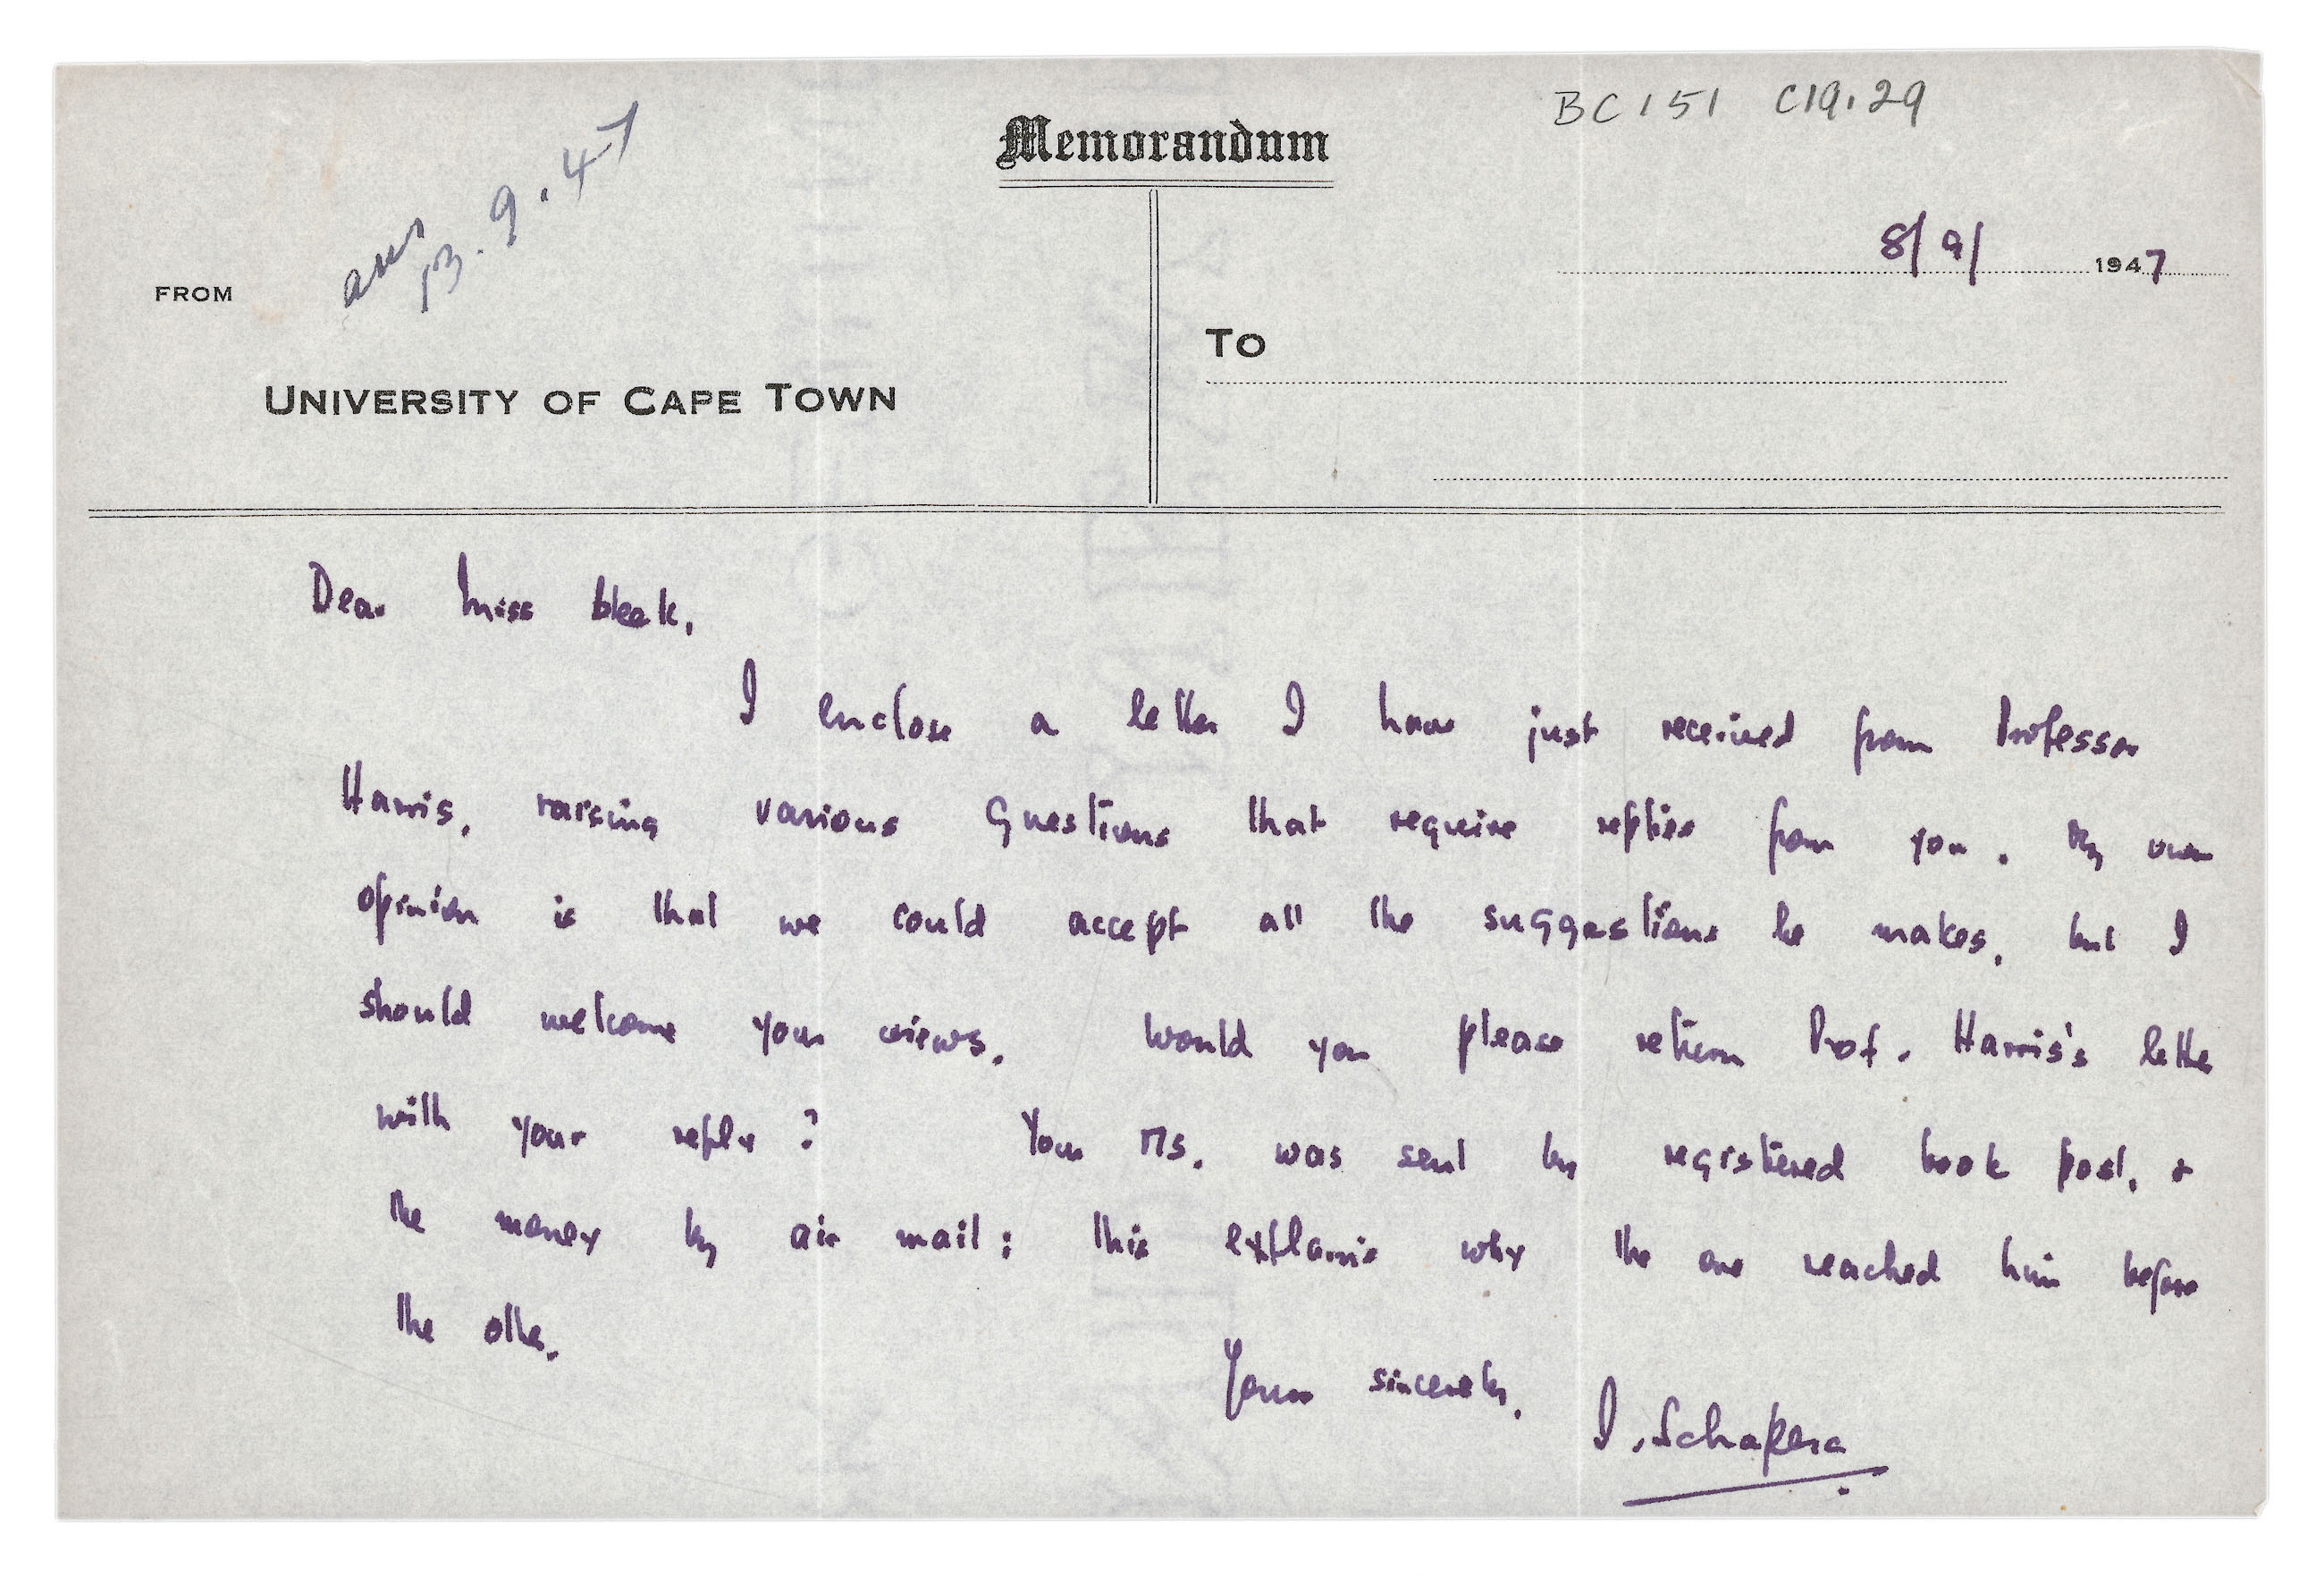 BC 151 C19.29
Memorandum
ans
13.9.47
8/9/ 1947
FROM
To
UNIVERSITY OF CAPE TOWN
Dear Miss Bleek,
I enclose a letter I have just received from Professor
Harris, raising various questions that require replies from you. My own
opinion is that we could accept all the suggestions he makes, but I
should welcome your views. Would you please return Prof. Harris's letter
with your reply? Your MS. was sent by registered book post, &
the money by air mail: this explains why the one reached him before
the other.
Yours sincerely,
I. Schapera